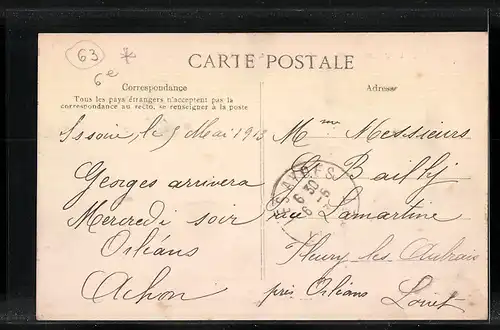 63
6e
CARTE POSTALE
Correspondance
Tous les pays étrangers n'acceptent pas la
correspondance au recto, se renseigner à la poste
Adresse
Issoire, le 5 Mai 1913
Georges arrivera
Mercredi soir
Orléans
Achon
Mme Messieurs
Bailly
rue Lamartine
Fleury les Aubrais
près Orléans Loiret